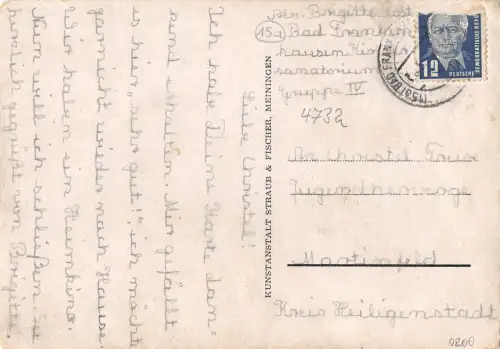 Liebe Christel!
Ich habe Deine Karte dan=
kend erhalten. Mir gefällt
es hier „sehr gut!" ich möchte
garnicht wieder nach Hause.
Wir haben ein Heimkino.
Nun will ich schließen, sei
herzlich gegrüßt von Brigitte.
KUNSTANSTALT STRAUB & FISCHER, MEININGEN
Brigitte
15a Bad Franken
hausen Kinder
sanatorium
Gruppe IV
4732
12
DEUTSCHE
DEMOKRATISCHE REPUBLIK
(15a) BAD FRANK
An Christel
Jugendherberge
Martinfeld
Kreis Heiligenstadt
0200